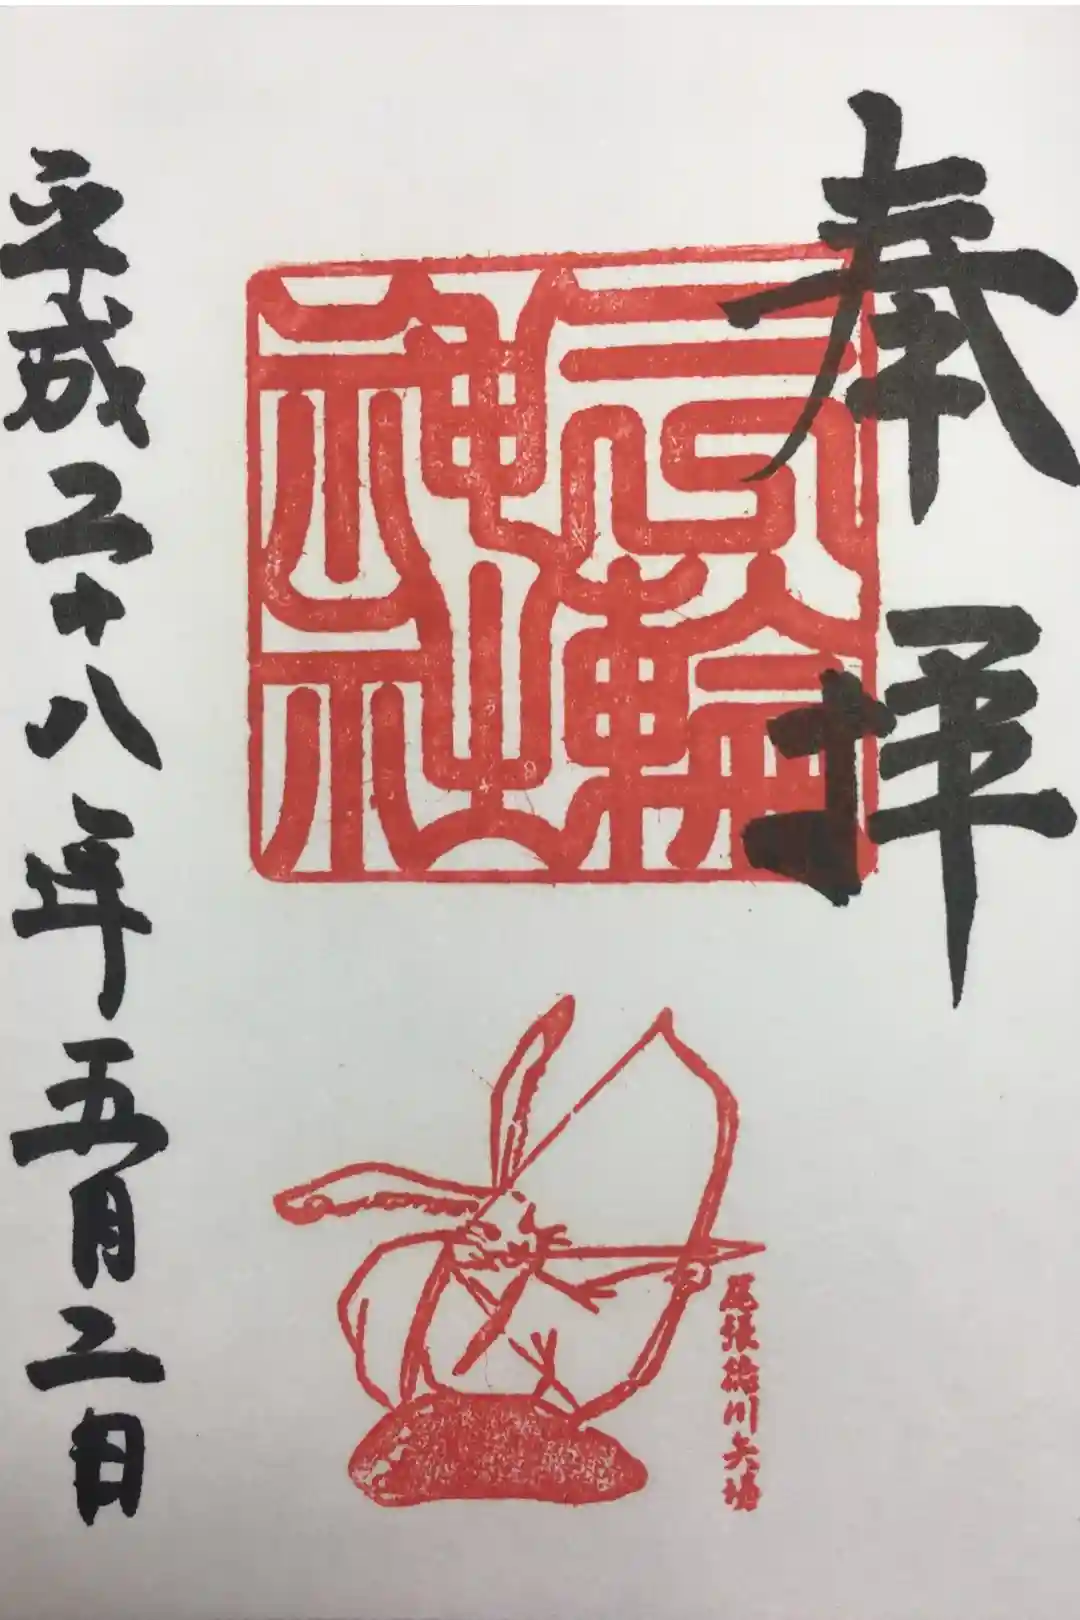 奉拝
三輪
神社
尾張徳川矢場
平成二十八年五月二日